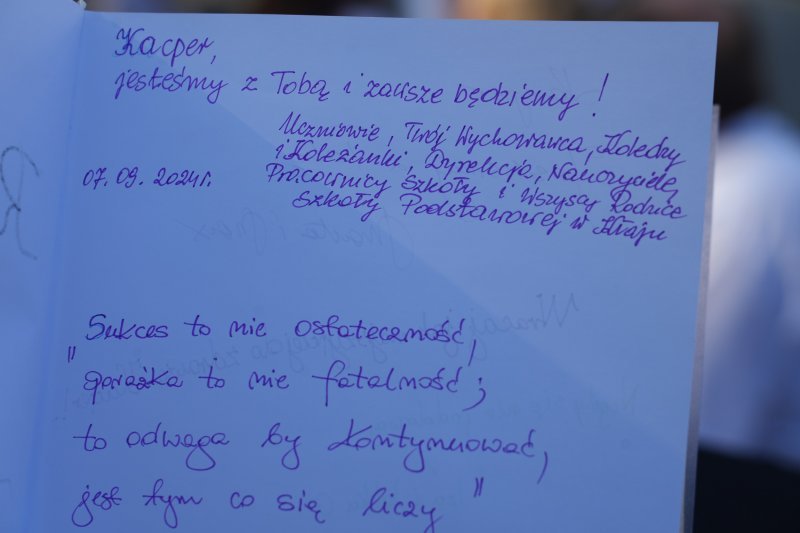 Kacper,
jesteśmy z Tobą i zawsze będziemy!
Uczniowie, Twój Wychowawca, Koledzy
i Koleżanki, Dyrekcja, Nauczyciele,
07.09.2024r. Pracownicy Szkoły i Wszyscy Rodzice
Szkoły Podstawowej w Kraju
"Sukces to nie ostateczność,
porażka to nie fatalność;
to odwaga by kontynuować,
jest tym co się liczy"